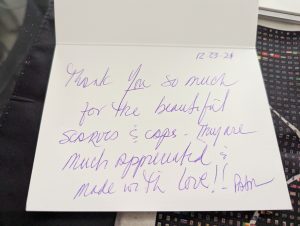 12-23-24
Thank you so much
for the beautiful
scarves & caps. They are
much appreciated &
made with love!!